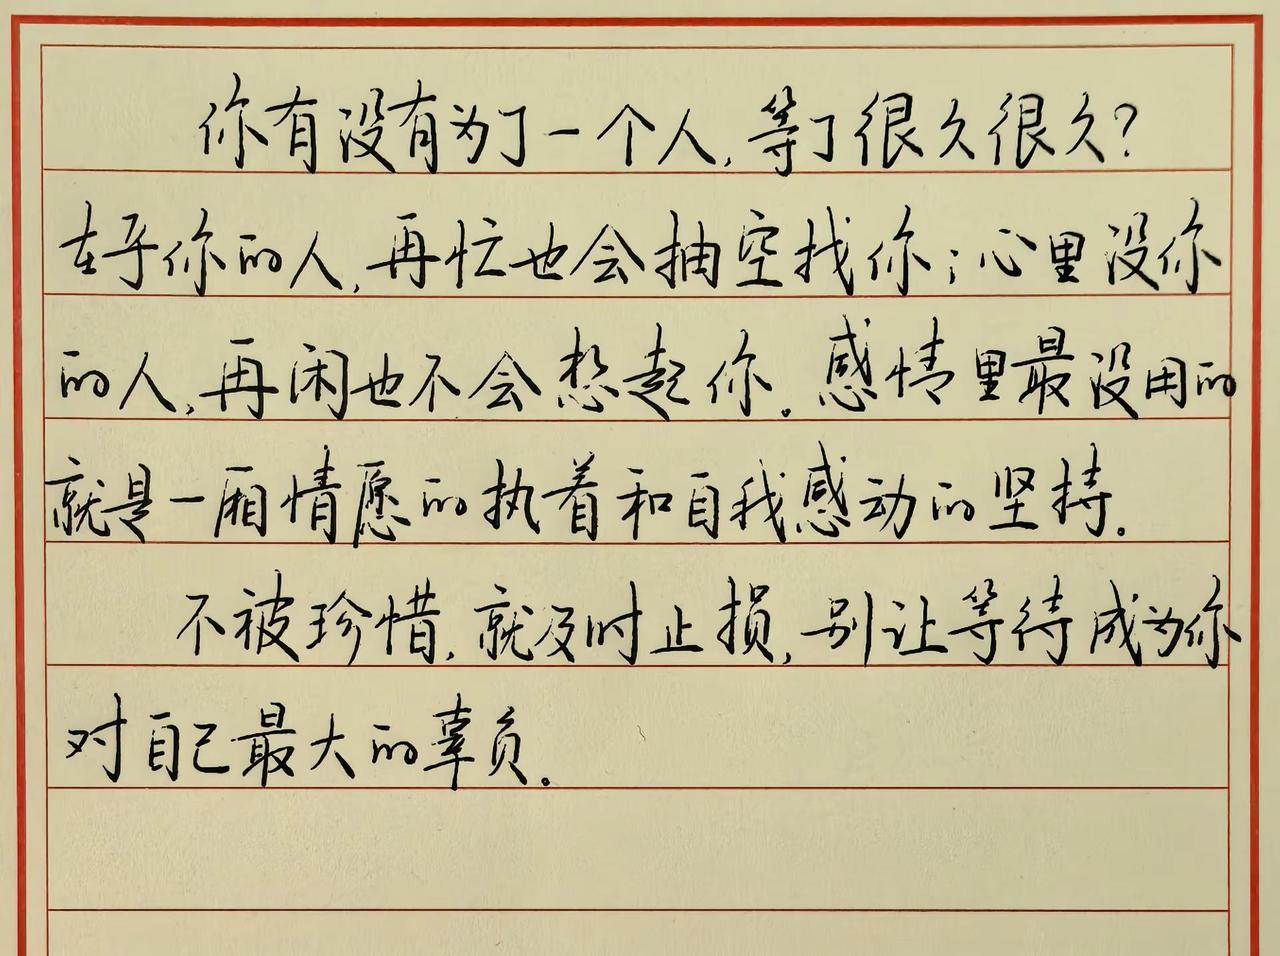 你有没有为了一个人,等了很久很久?
在乎你的人,再忙也会抽空找你;心里没你
的人,再闲也不会想起你。感情里最没用的
就是一厢情愿的执着和自我感动的坚持。
不被珍惜,就及时止损,别让等待成为你
对自己最大的辜负。